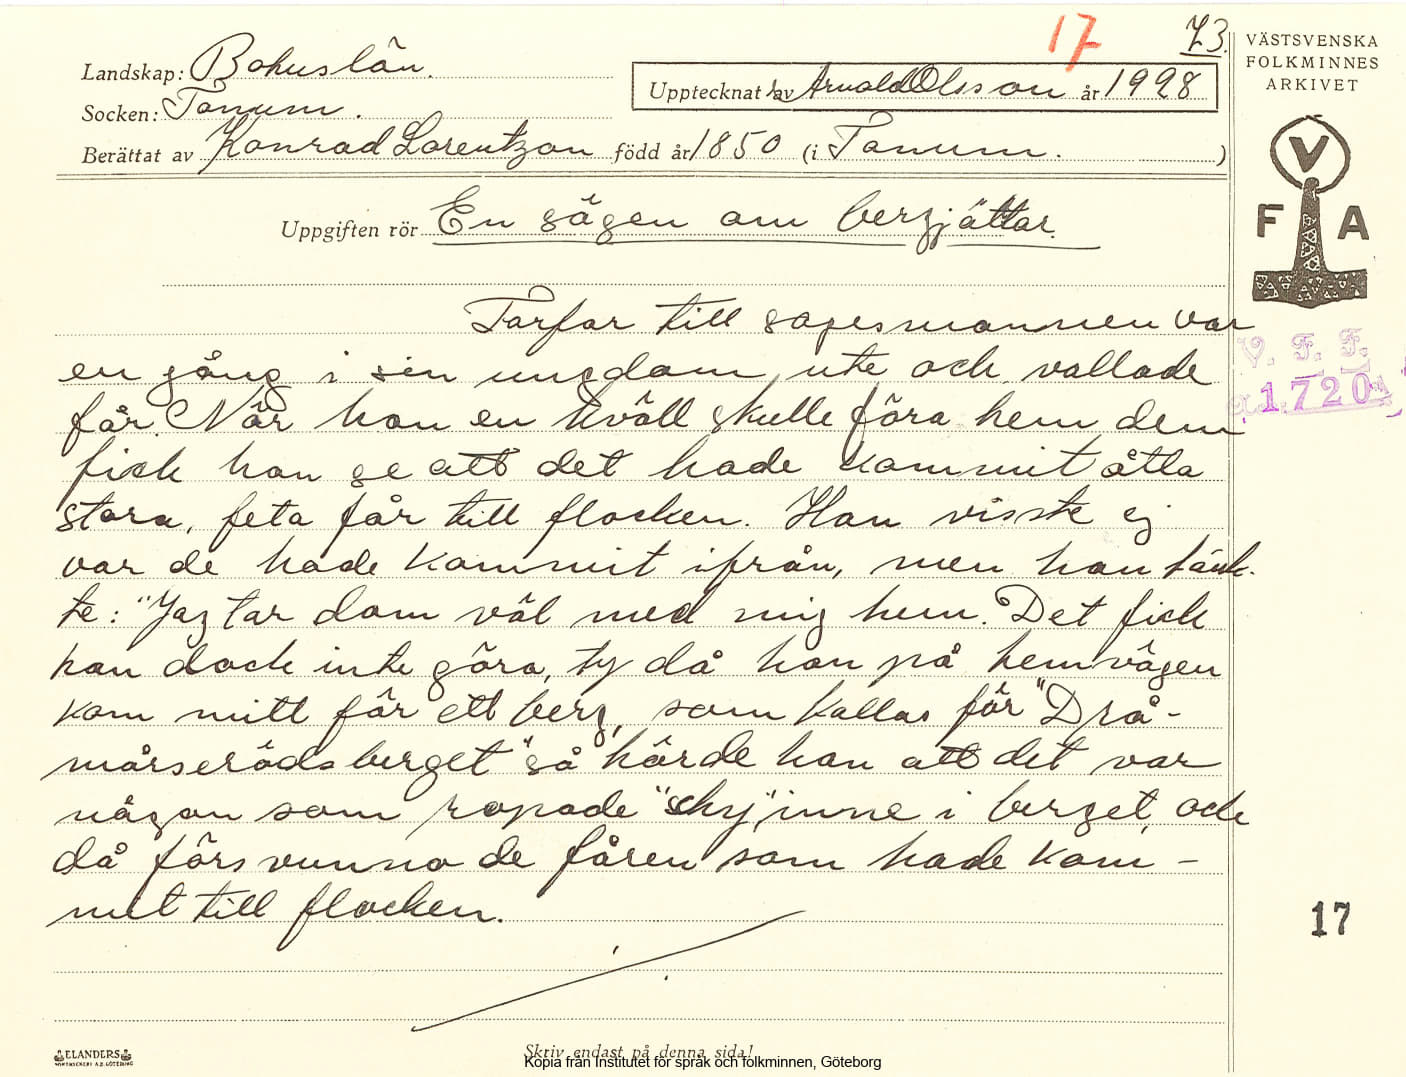 17
73.
Landskap: Bohuslän.
Socken: Tanum.
Upptecknat av Arnold Olsson år 1928
Berättat av Konrad Lorentzon född år 1850 (i Tanum. )
VÄSTSVENSKA
FOLKMINNES
ARKIVET
V
F A
Uppgiften rör En sägen om bergjättar.
V. F. F.
1720
Farfar till sagesmannen var
en gång i sin ungdom ute och vallade
får. När han en kväll skulle föra hem dem
fick han se att det hade kommit åtta
stora, feta får till flocken. Han visste ej
var de hade kommit ifrån, men han tänk-
te: "Jag tar dom väl med mig hem. Det fick
han dock inte göra, ty då han på hemvägen
kom mitt för ett berg, som kallas för "Drå-
mårserödsberget" så hörde han att det var
någon som ropade "schy" inne i berget, och
då försvunno de fåren som hade kom-
mit till flocken.
17
ELANDERS
Skriv endast på denna sida!
Kopia från Institutet för språk och folkminnen, Göteborg